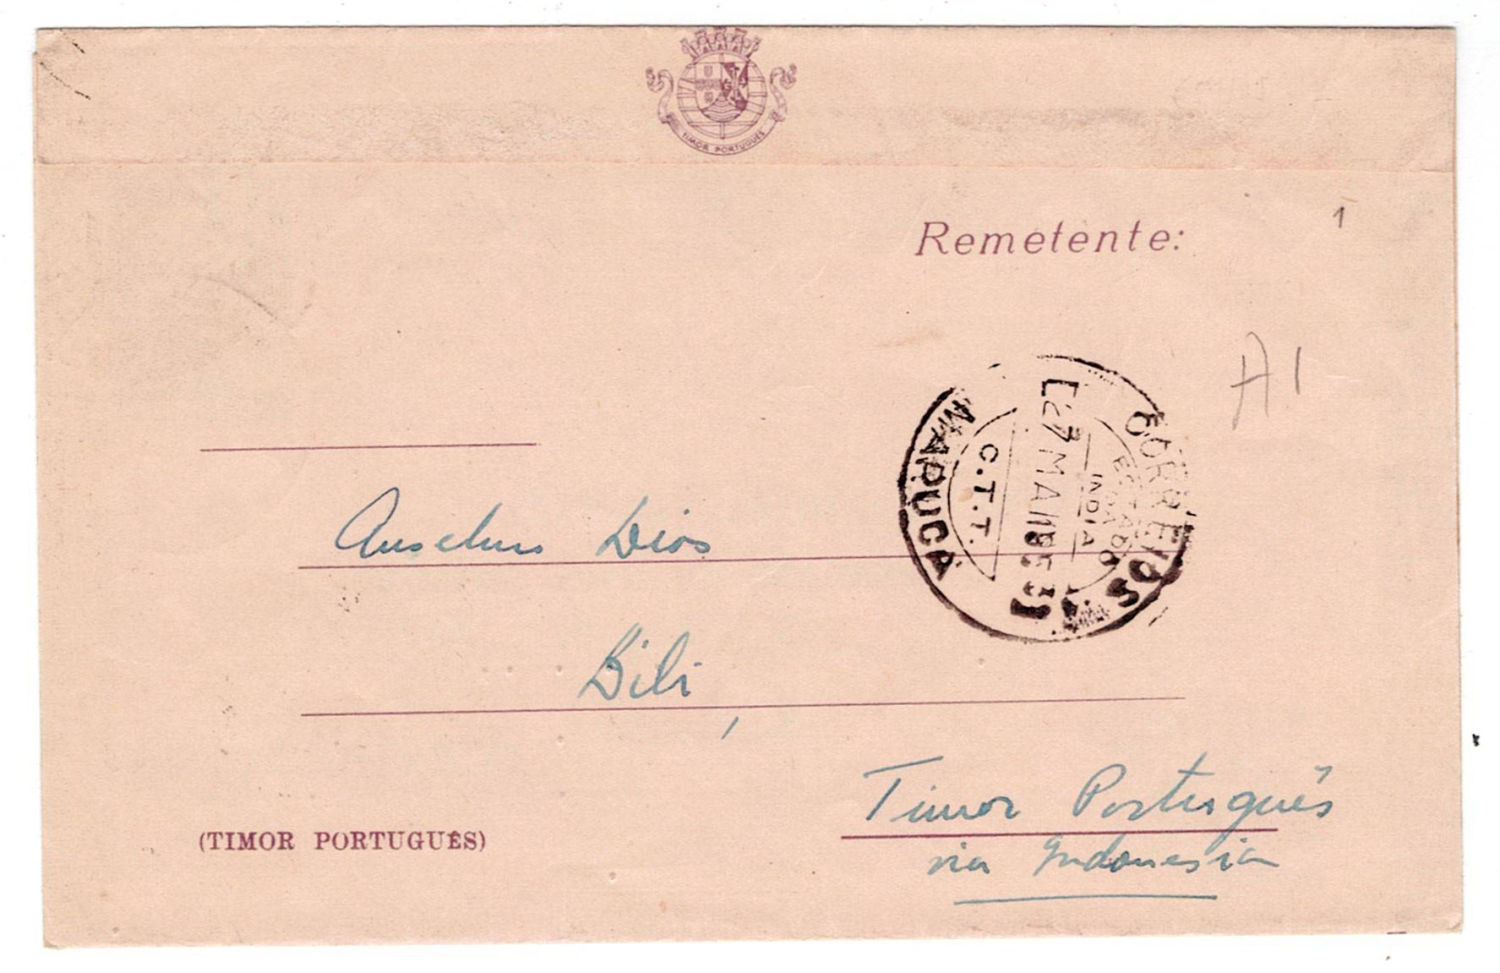 TIMOR PORTUGUÊS
Remetente:
1
A1
CORREIOS
ESTADO
DA
INDIA
27 MAI 195
C.T.T.
MAPUCÁ
Anselmo Dias
Dili,
Timor Português
via Indonesia
(TIMOR PORTUGUÊS)